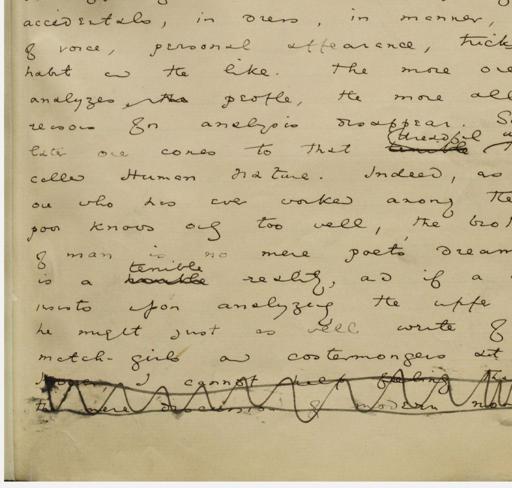 accidentals, in dress, in manner,
of voice, personal appearance, trick
habit and the like. The more one
analyzes the people, the more all
reasons for analysis disappear. So
later one comes to that dreadful
called Human nature. Indeed, as
one who has ever worked among the
poor knows only too well, the bro
of man is no mere poets' dream
is a terrible reality, and if a
insists upon analyzing the uppe
he might just as well write of
match-girls and costermongers at
I cannot help feeling
the mere discussion of modern